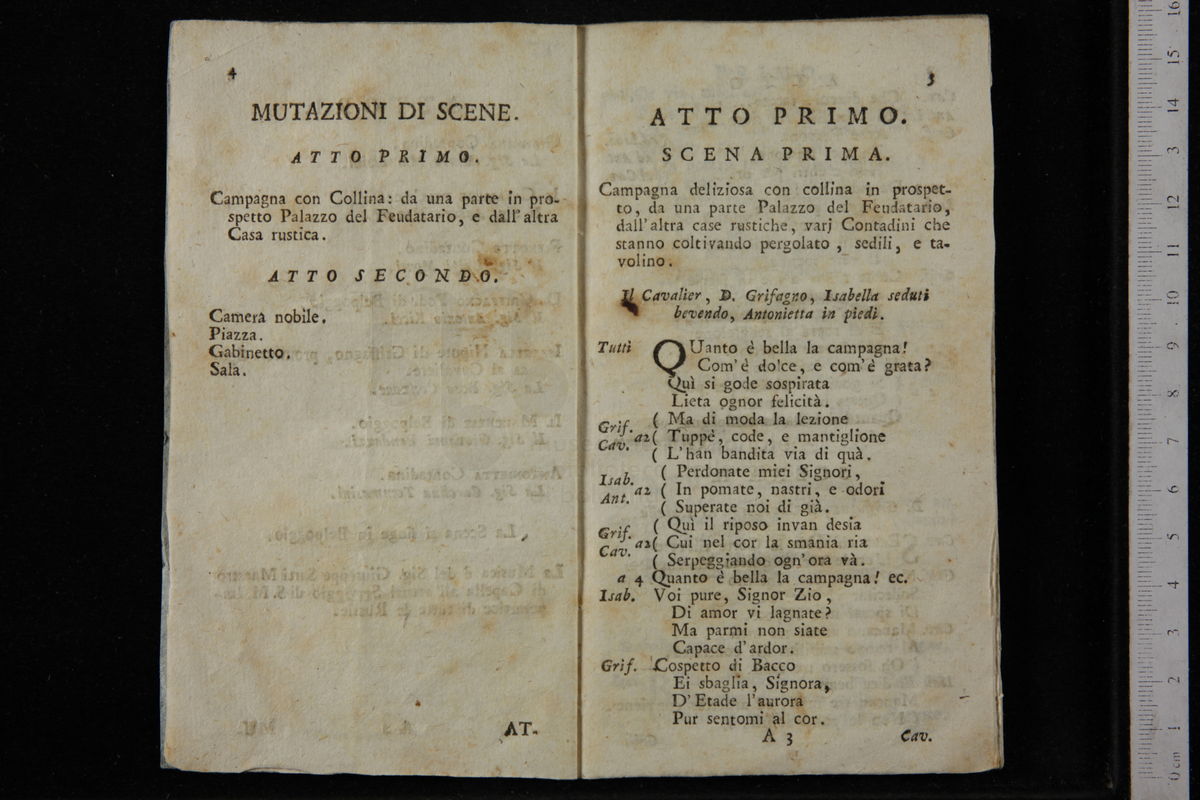 4
MUTAZIONI DI SCENE.
ATTO PRIMO.
Campagna con Collina: da una parte in pro-
spetto Palazzo del Feudatario, e dall'altra
Casa rustica.
ATTO SECONDO.
Camera nobile.
Piazza.
Gabinetto.
Sala.
AT-
3
ATTO PRIMO.
SCENA PRIMA.
Campagna deliziosa con collina in prospet-
to, da una parte Palazzo del Feudatario,
dall'altra case rustiche, varj Contadini che
stanno coltivando pergolato, sedili, e ta-
volino.
Il Cavalier, D. Grifagno, Isabella seduti
bevendo, Antonietta in piedi.
Tutti QUanto è bella la campagna!
Com'è dolce, e com'è grata?
Quì si gode sospirata
Lieta ognor felicità.
( Ma di moda la lezione
Grif. Cav. a2 ( Tuppè, code, e mantiglione
( L'han bandita via di quà.
( Perdonate miei Signori,
Isab. Ant. a2 ( In pomate, nastri, e odori
( Superate noi di già.
( Quì il riposo invan desia
Grif. Cav. a2 ( Cui nel cor la smania ria
( Serpeggiando ogn'ora và.
a 4 Quanto è bella la campagna! ec.
Isab. Voi pure, Signor Zio,
Di amor vi lagnate?
Ma parmi non siate
Capace d'ardor.
Grif. Cospetto di Bacco
Ei sbaglia, Signora,
D'Etade l'aurora
Pur sentomi al cor.
A 3
Cav.
0 cm 1 2 3 4 5 6 7 8 9 10 11 12 3 14 15 16